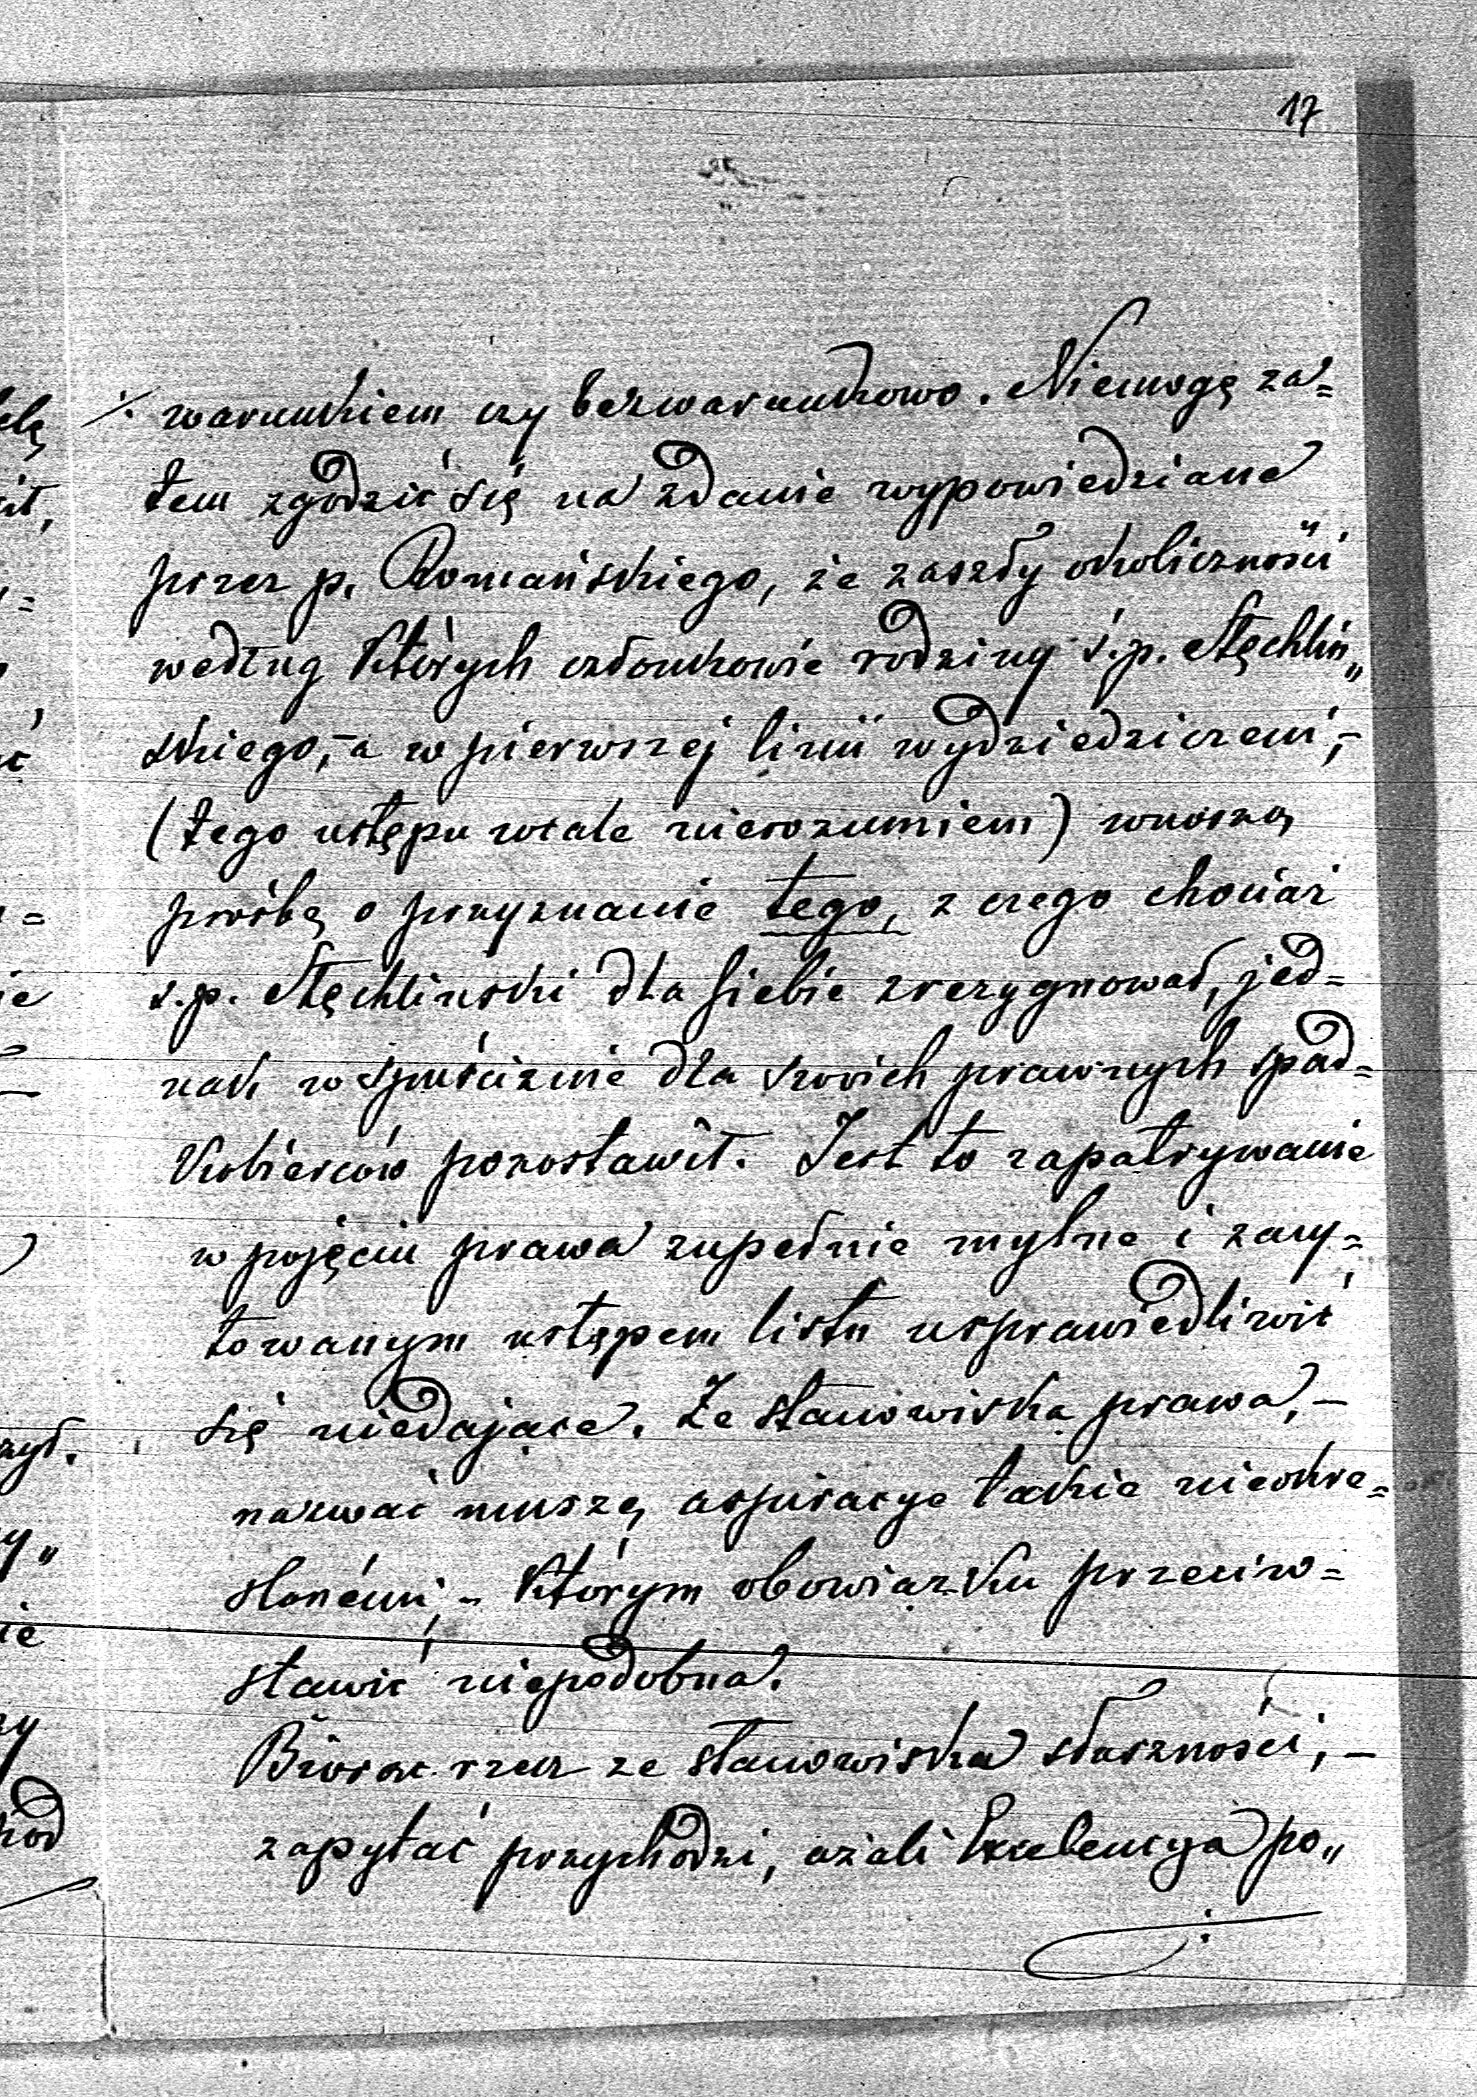 17
·/. warunkiem czy bezwarunkowo. Niemogę za=
tem zgodzić się na zdanie wypowiedziane
przez p. Romańskiego, że zaszły okoliczności
według których członkowie rodziny ś.p. Stęchliń„
skiego,-a w pierwszej linii wydziedziczeni,-
(tego ustępu wcale nierozumiem) wnoszą
prośbę o przyznanie tego, z czego chociaż
ś.p. Stęchliński dla siebie zrezygnował, jed=
nak w spuściznie dla swoich prawnych spad=
kobierców pozostawił. Jest to zapatrywanie
w pojęciu prawa zupełnie mylne i zacy=
towanym ustępem listu usprawiedliwić
się niedające. Ze stanowiska prawa,-
nazwać muszę aspiracye takie nieokre=
slonémi,- którym obowiązku przeciw=
stawić niepodobna.
Biorąc rzecz ze stanowiska słuszności,-
zapytać przychodzi, azali Excelencya po„